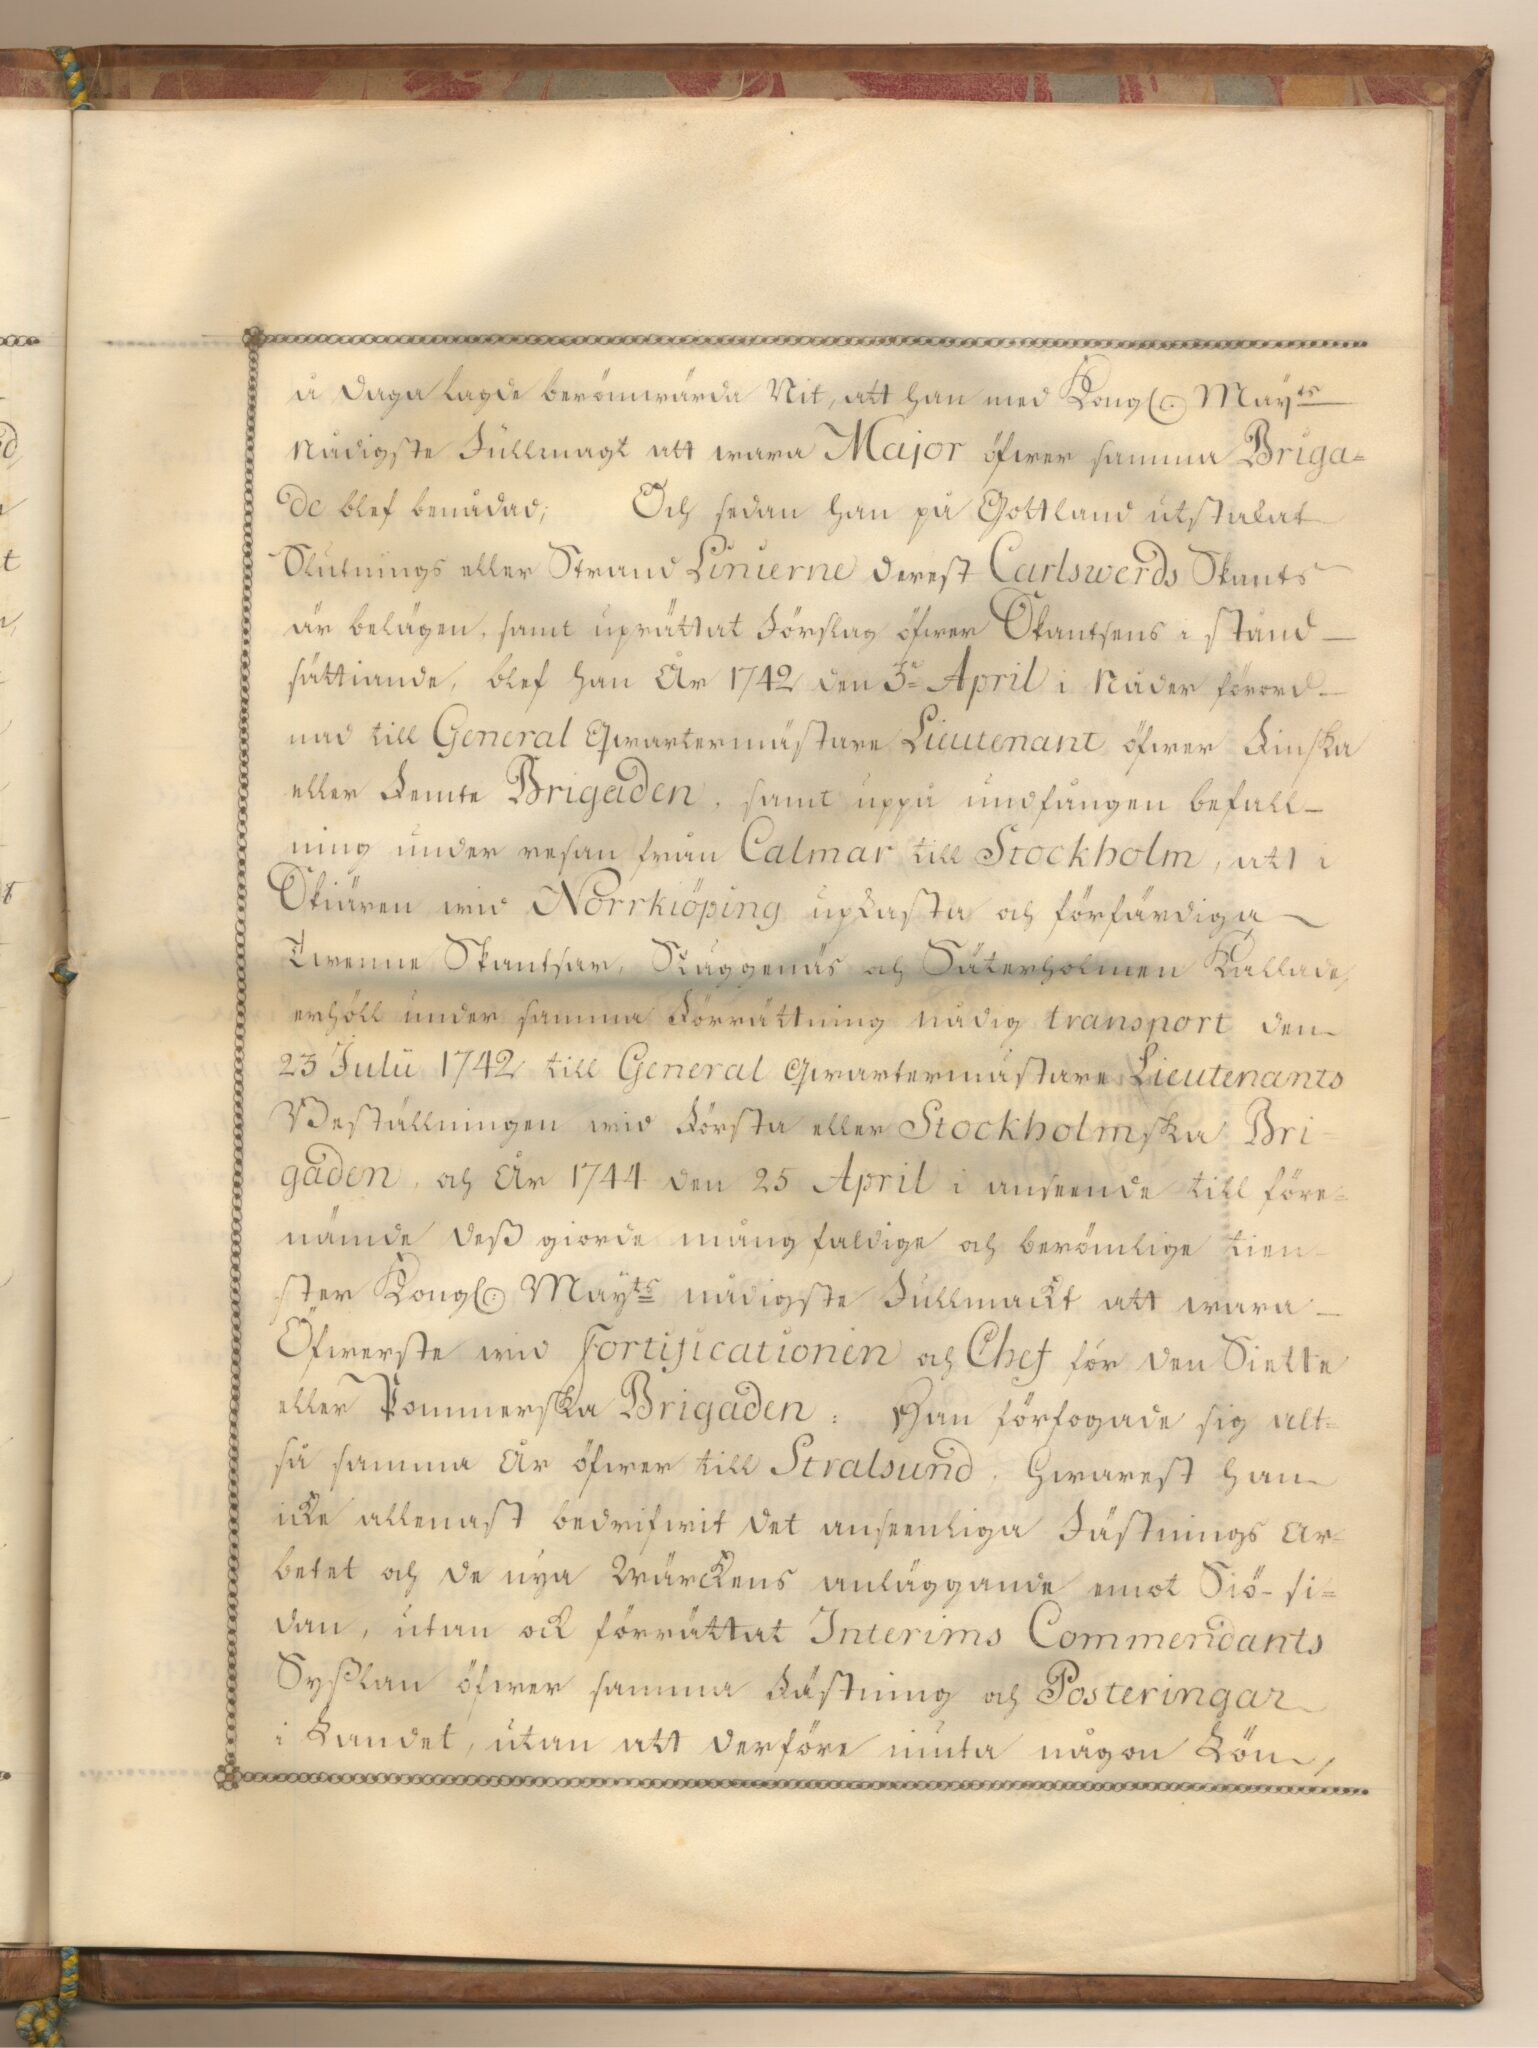 å daga lagde berömwärda Nit, att han med Kongl: Maÿts
Nådigste Fullmagt att wara Major öfwer samma Briga=
de blef benådad; Och sedan han på Gottland utstakat
Slutnings eller Strand Linierne derest Carlswerds Skants
är belägen, samt uprättat Förslag öfwer Skantsens i stånd-
sättiande, blef han År 1742 den 3e April i Nåder förord-
nad till General Qwartermästare Lieutenant öfwer Finska
eller Femte Brigaden, samt uppå undfången befall-
ning under resan från Calmar till Stockholm, att i
Skiären wid Norrkiöping upkasta och förfärdiga
Twenne Skantsar, Skäggenäs och Säterholmen Kallade,
erhöll under samma Förrättning nådig transport den
23 Julii 1742 till General Qwartermästare Lieutenants
Beställningen wid Första eller Stockholmska Bri=
gaden, och År 1744 den 25 April i anseende till före=
nämde deß giorde mångfaldige och berömlige tien-
ster Kongl: Maÿts nådigste Fullmackt att wara
Öfwerste wid Fortificationen och Chef för den Siette
eller Pommerska Brigaden: Han förfogade sig alt=
så samma År öfwer till Stralsund, hwarest han
icke allenast bedrifwit det anseenliga Fästnings Ar=
betet och de nya Wärckens anläggande emot Siö-si=
dan, utan ock förrättat Interims Commendants
Syßlan öfwer samma Fästning och Posteringar
i Landet, utan att derföre niuta någon Lön,